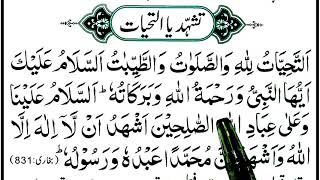 تشہد یا التحیات
اَلتَّحِيَّاتُ لِلّٰهِ وَالصَّلَوٰتُ وَالطَّيِّبٰتُ اَلسَّلَامُ عَلَيْكَ
اَيُّهَا النَّبِيُّ وَرَحْمَةُ اللهِ وَبَرَكَاتُهٗ ؕ اَلسَّلَامُ عَلَيْنَا
وَعَلٰى عِبَادِ اللهِ الصّٰلِحِيْنَ اَشْهَدُ اَنْ لَّا اِلٰهَ اِلَّا
اللهُ وَاَشْهَدُ اَنَّ مُحَمَّدًا عَبْدُهٗ وَرَسُوْلُهٗ ؕ (بخاری:831)